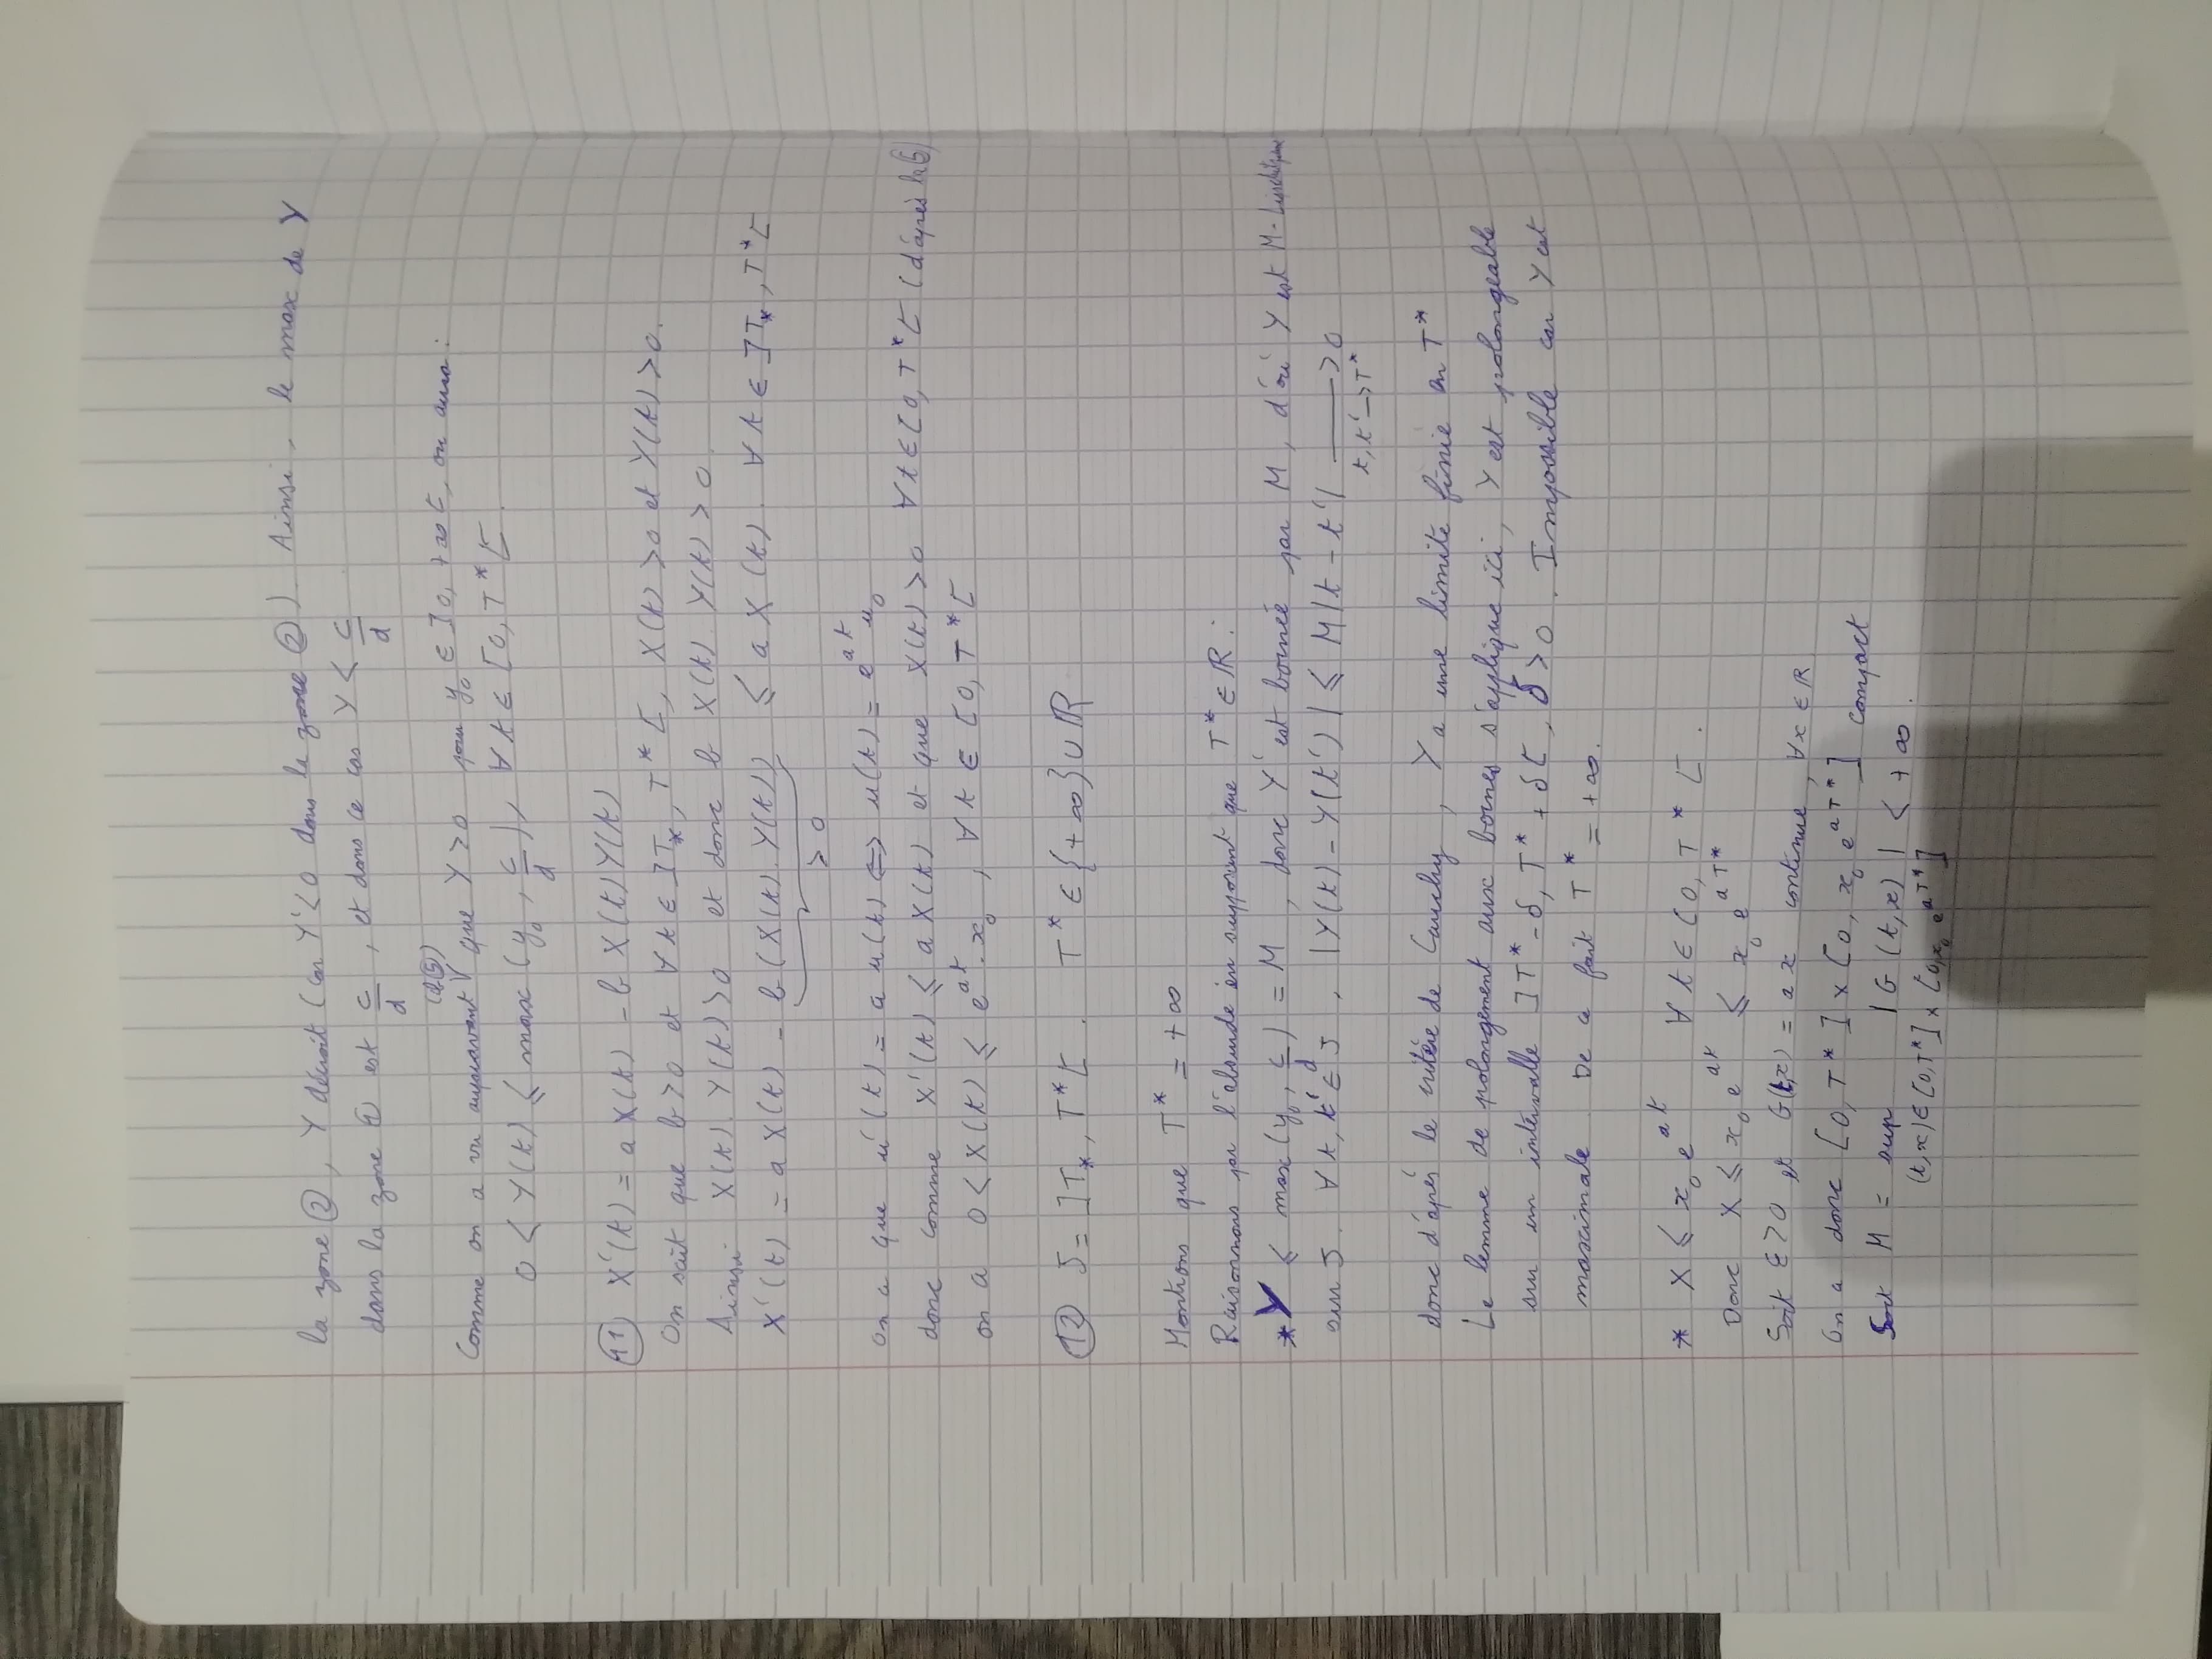 la zone ②, Y décroit (car Y'<0 dans la zone ②). Ainsi, le max de Y
dans la zone ① est c/d, et dans ce cas Y < c/d
Comme on a vu auparavant (d(5)) que Y>0 pour y₀ ∈ ]0,+∞[, on aura:
0 < Y(t) ≤ max(y₀, c/d), ∀t∈[0,T*[.
⑪ X'(t) = a X(t) - b X(t)Y(t)
On sait que b>0 et ∀t∈]T_*, T*[, X(t)>0 et Y(t)>0.
Ainsi X(t).Y(t)>0 et donc b X(t).Y(t)>0
X'(t) = a X(t) - b(X(t).Y(t)) ≤ a X(t). ∀t∈]T_*, T*[
>0
on a que u'(t) = a u(t) ⇔ u(t) = e^{at} u₀
donc comme X'(t) ≤ a X(t) et que X(t)>0 ∀t∈[0,T*[ (d'après la ⑤)
on a 0 < X(t) ≤ e^{at}.x₀, ∀t∈[0,T*[
⑫ J = ]T_*, T*[. T* ∈ {+∞}∪ℝ
Montrons que T* = +∞
Raisonnons par l'absurde en supposant que T*∈ℝ:
* Y ≤ max(y₀, c/d) = M, donc Y' est bornée par M, d'où Y est M-Lipschitzienne
sur J. ∀t,t'∈J, |Y(t) - Y(t')| ≤ M|t - t'| ⟶ 0
t,t'→T*
donc d'après le critère de Cauchy, Y a une limite finie en T*
Le lemme de prolongement aux bornes s'applique ici, Y est prolongeable
sur un intervalle ]T*-δ, T*+δ[, δ>0. Impossible car Y est
maximale. De ce fait T* = +∞.
* X ≤ x₀ e^{at} ∀t∈[0,T*[.
Donc X ≤ x₀ e^{at} ≤ x₀ e^{aT*}
Soit ε>0 et G(t,x) = a x continue, ∀x∈ℝ
On a donc [0,T*]×[0, x₀ e^{aT*}] compact
Soit M = sup |G(t,x)| < +∞.
(t,x)∈[0,T*]×[0,x₀ e^{aT*}]